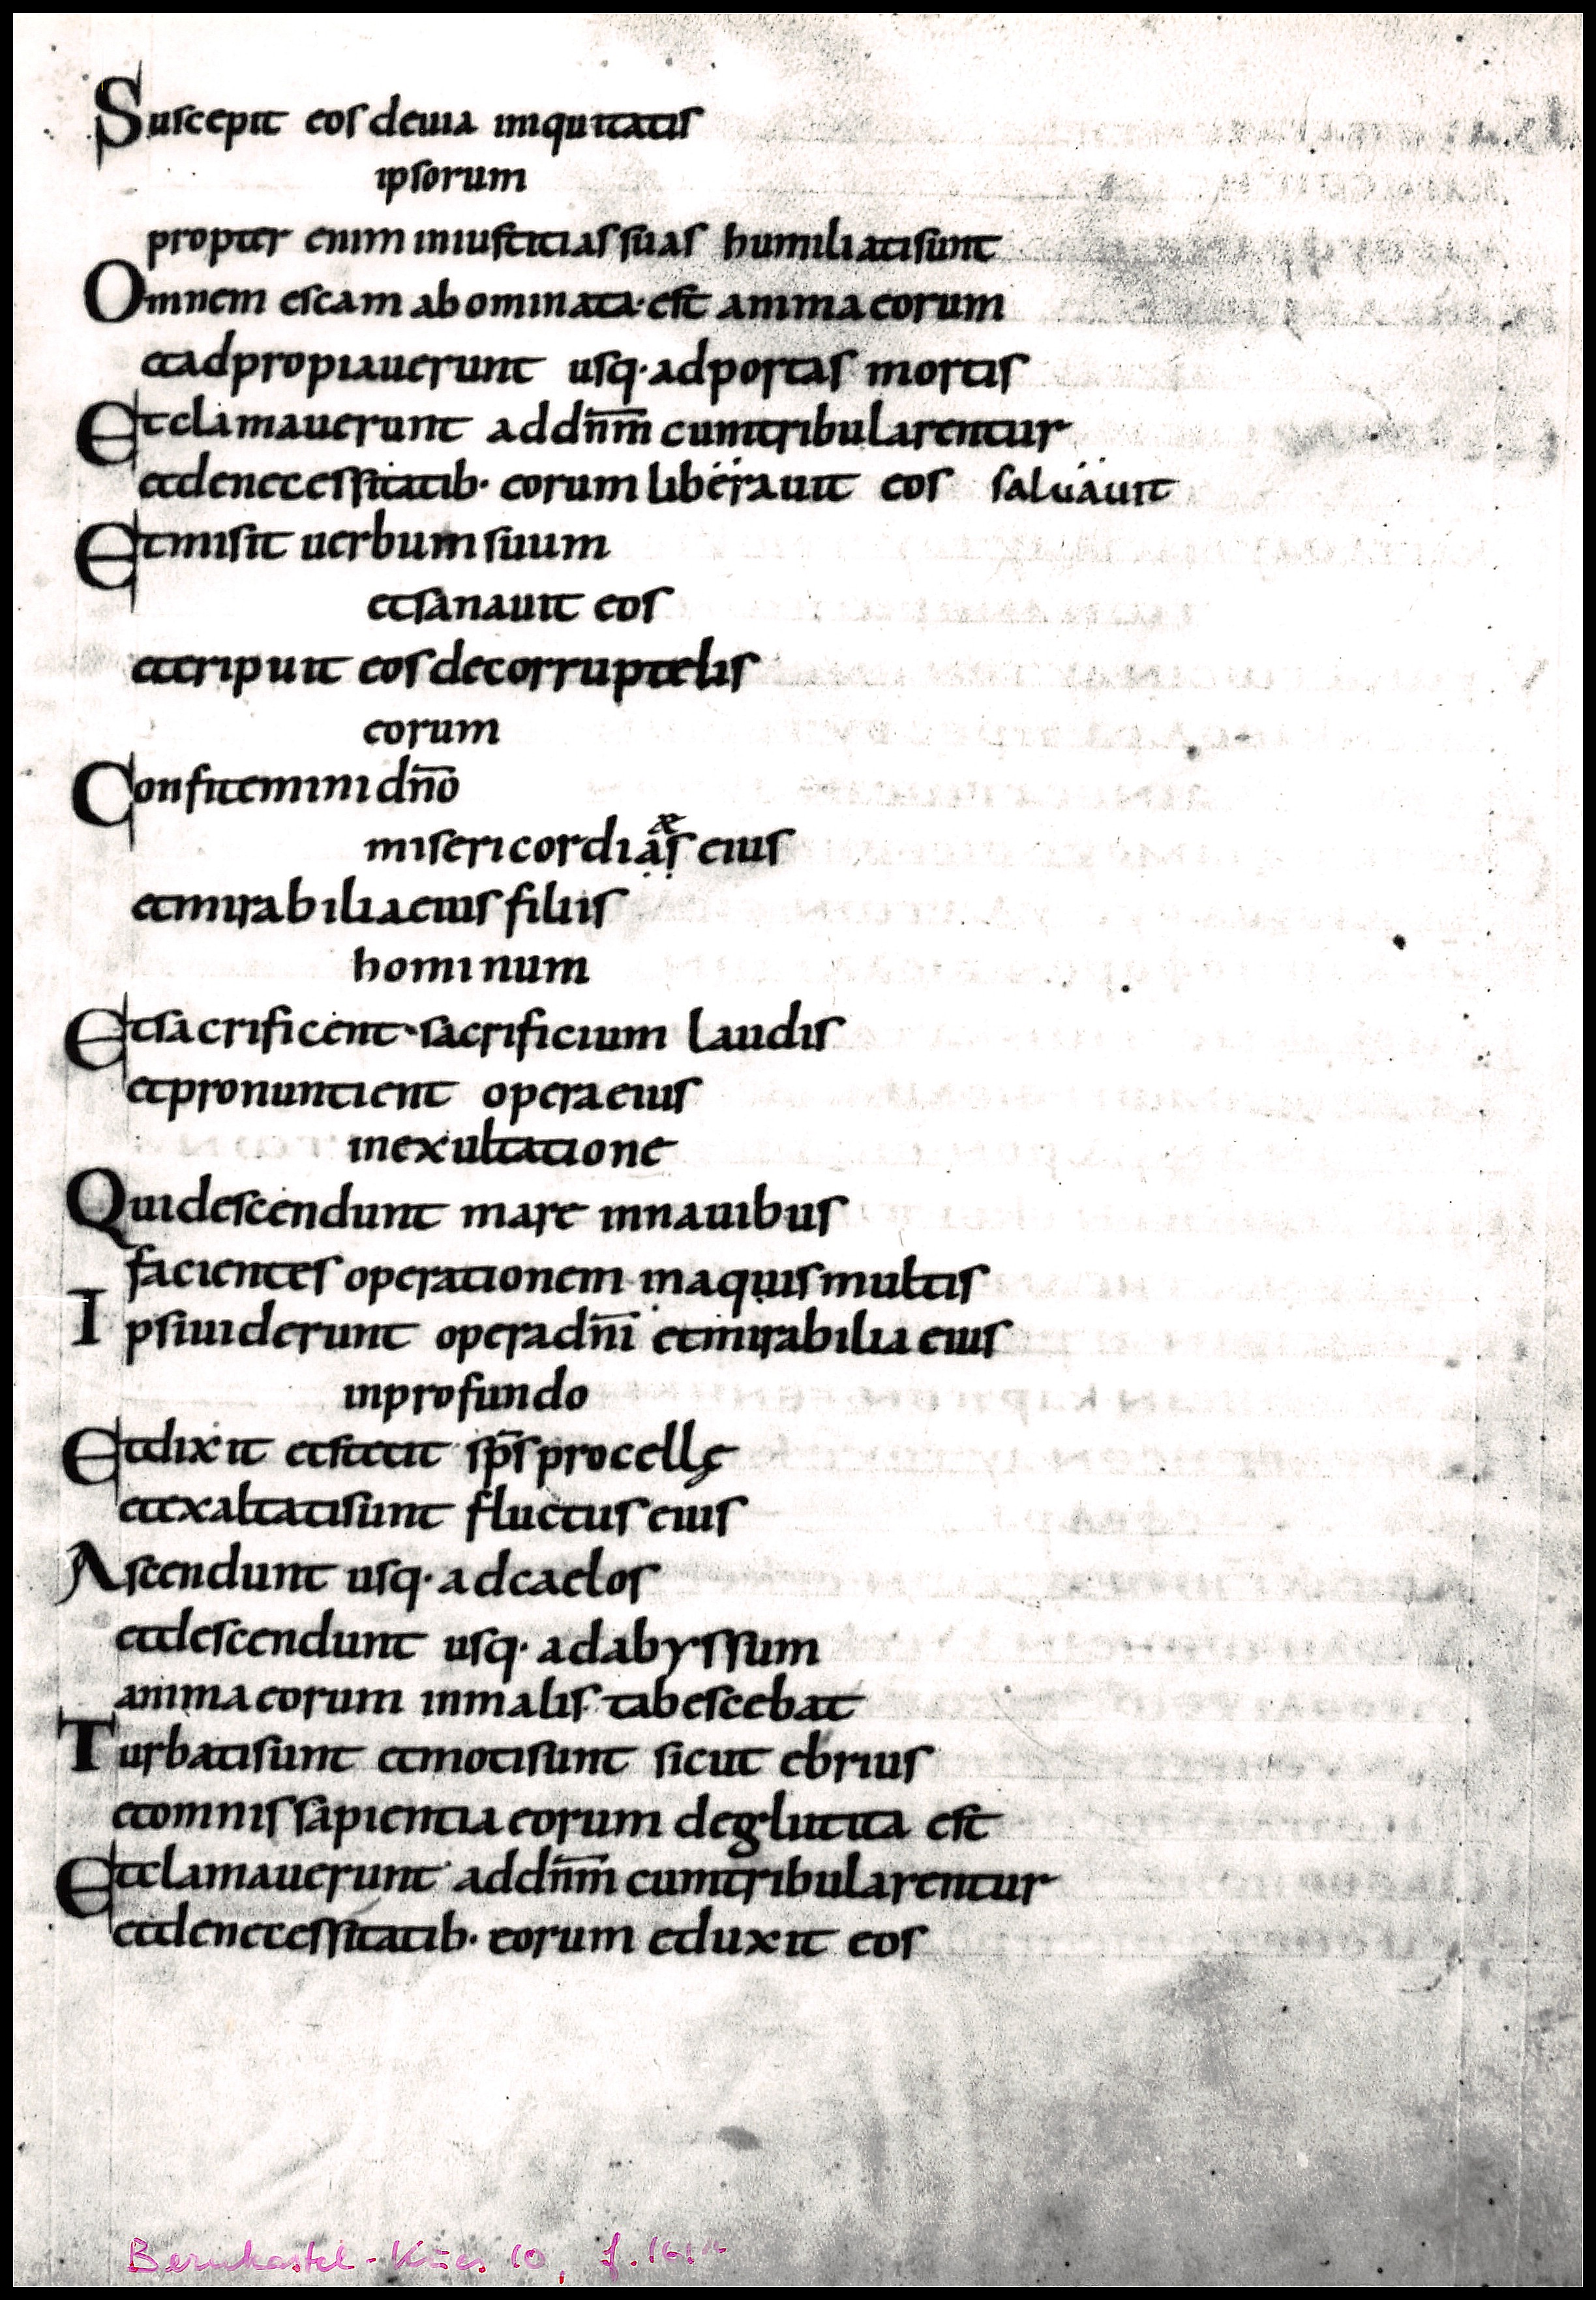 Suscepit eos deuia iniquitatis
ipsorum
propter enim iniusticias suas humiliati sunt
Omnem escam abominata· est anima eorum
et adpropiauerunt usq· ad portas mortis
Et clamauerunt ad dn̄m cum tribularentur
et de necessitatib· eorum liberauit eos saluauit
Et misit uerbum suum
et sanauit eos
et eripuit eos de corruptelis
eorum
Confitemini dn̄o
æ
misericordias eius
et mirabilia eius filiis
hominum
Et sacrificent· sacrificium laudis
et pronuntient opera eius
in exultatione
Qui descendunt mare in nauibus
facientes operationem in aquis multis
Ipsi uiderunt opera dn̄i et mirabilia eius
in profundo
Et dixit et stetit sp̄s procellę
et exaltati sunt fluctus eius
Ascendunt usq· ad caelos
et descendunt usq· ad abyssum
anima eorum in malis tabescebat
Turbati sunt et moti sunt sicut ebrius
et omnis sapientia eorum deglutita est
Et clamauerunt ad dn̄m cum tribularentur
et de necessitatib· eorum eduxit eos
Bernkastel-Kues 10, f.